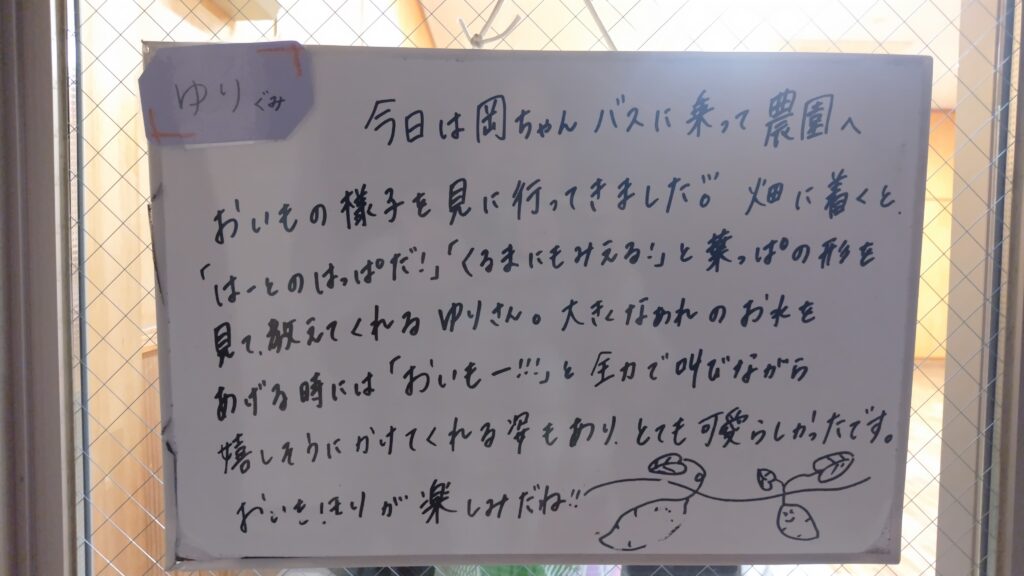 ゆり ぐみ
今日は岡ちゃんバスに乗って農園へ
おいもの様子を見に行ってきました。畑に着くと、
「はーとのはっぱだ!」「くるまにもみえる!」と葉っぱの形を
見て、教えてくれるゆりさん。大きくなあれのお水を
あげる時には「おいもー!!!」と全力で叫びながら
嬉しそうにかけてくれる姿もあり、とても可愛らしかったです。
おいもほりが楽しみだね!!